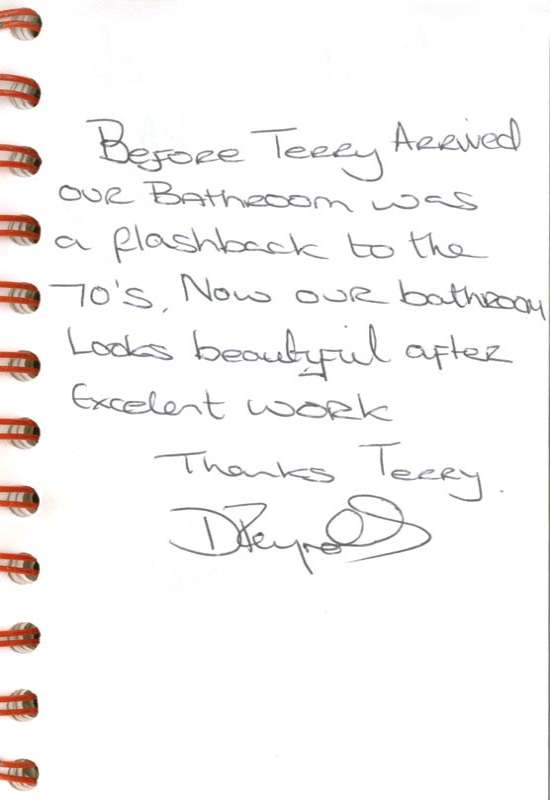 Before Terry Arrived
our Bathroom was
a flashback to the
70's. Now our bathroom
Looks beautyful after
Excelent work
Thanks Terry.
D Reynolds